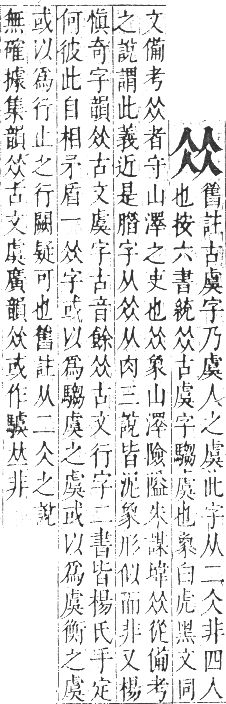 𠈌
舊註古虞字乃虞人之虞此字从二仌非四人
也按六書統𠈌古虞字騶虞也象白虎黑文同
文備考𠈌者守山澤之吏也𠈌象山澤險隘朱謀㙔𠈌從備考
之說謂此義近是腊字从𠈌从肉三說皆泥象形似而非又楊
愼奇字韻𠈌古文虞字古音餘𠈌古文行字二書皆楊氏手定
何彼此自相矛盾一𠈌字或以爲騶虞之虞或以爲虞衡之虞
或以爲行止之行闕疑可也舊註从二仌之說
無確據集韻𠈌古文虞廣韻𠈌或作𠀤非